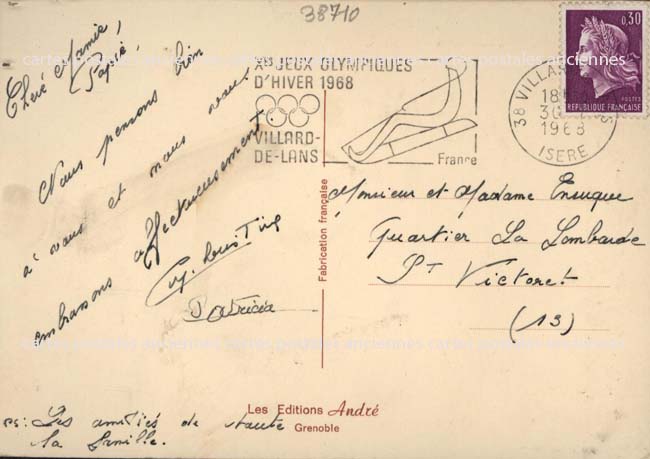 38710
Chère Mamie,
Papie
Nous pensons bien
à vous et nous vous
embrassons affectueusement
Patricia
PS: Les amitiés de toute
la famille.
Xes JEUX OLYMPIQUES
D'HIVER 1968
VILLARD-
DE-LANS
France
38 VILLARD
18
30
1968
ISERE
0,30
POSTES
REPUBLIQUE FRANÇAISE
Fabrication française
Monsieur et Madame
Quartier La Lombarde
St Victoret
(13)
Les Editions André
Grenoble
cartes postales anciennes